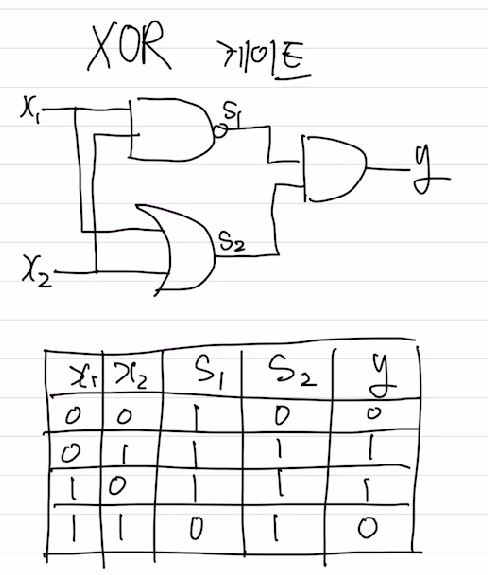 XOR 게이트
x₁
S₁
y
x₂
S₂
x₁ x₂ S₁ S₂ y
0 0 1 0 0
0 1 1 1 1
1 0 1 1 1
1 1 0 1 0